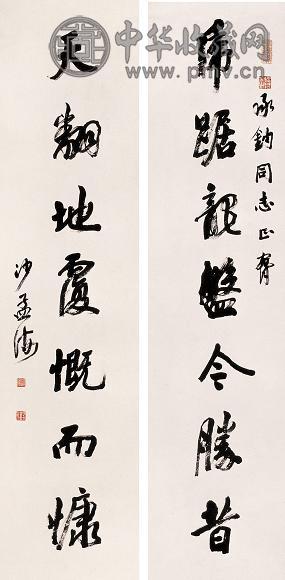 中华收藏网
www.pmv.cn
承鈞同志正
虎踞龍盤今勝昔
天翻地覆慨而慷
沙孟海